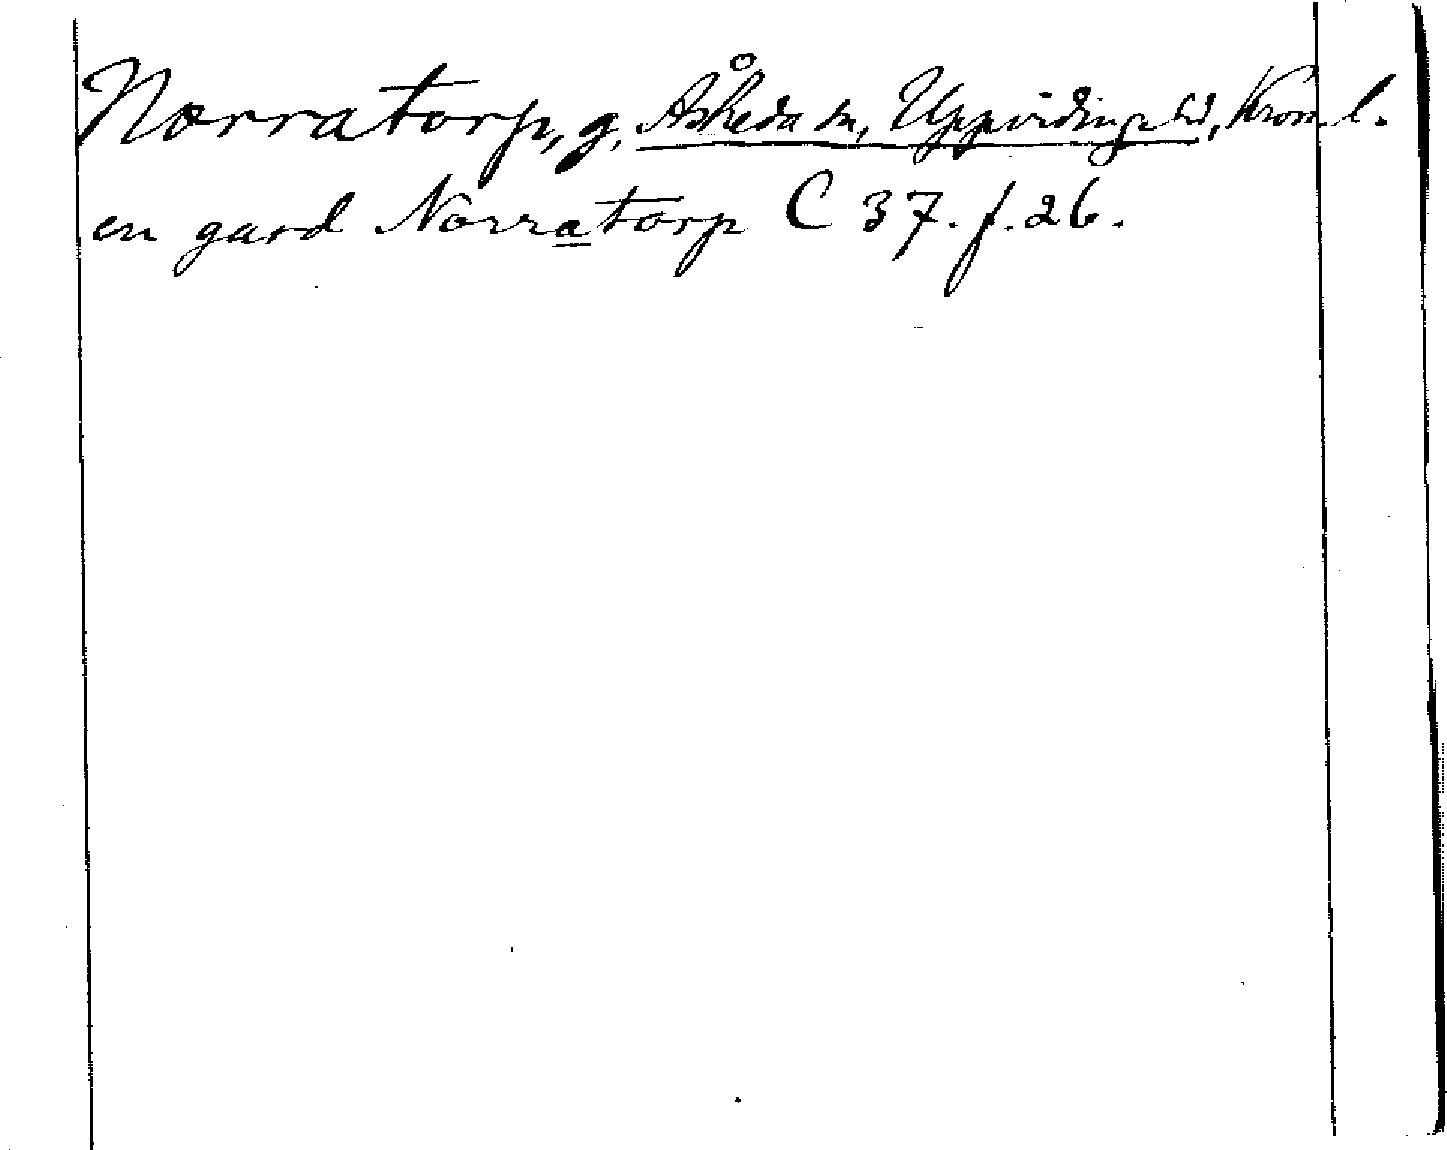 Norratorp, g, Åsheda sn, Uppvidinge hd, Kron. l.
en gard Norratorp C 37. f. 26.